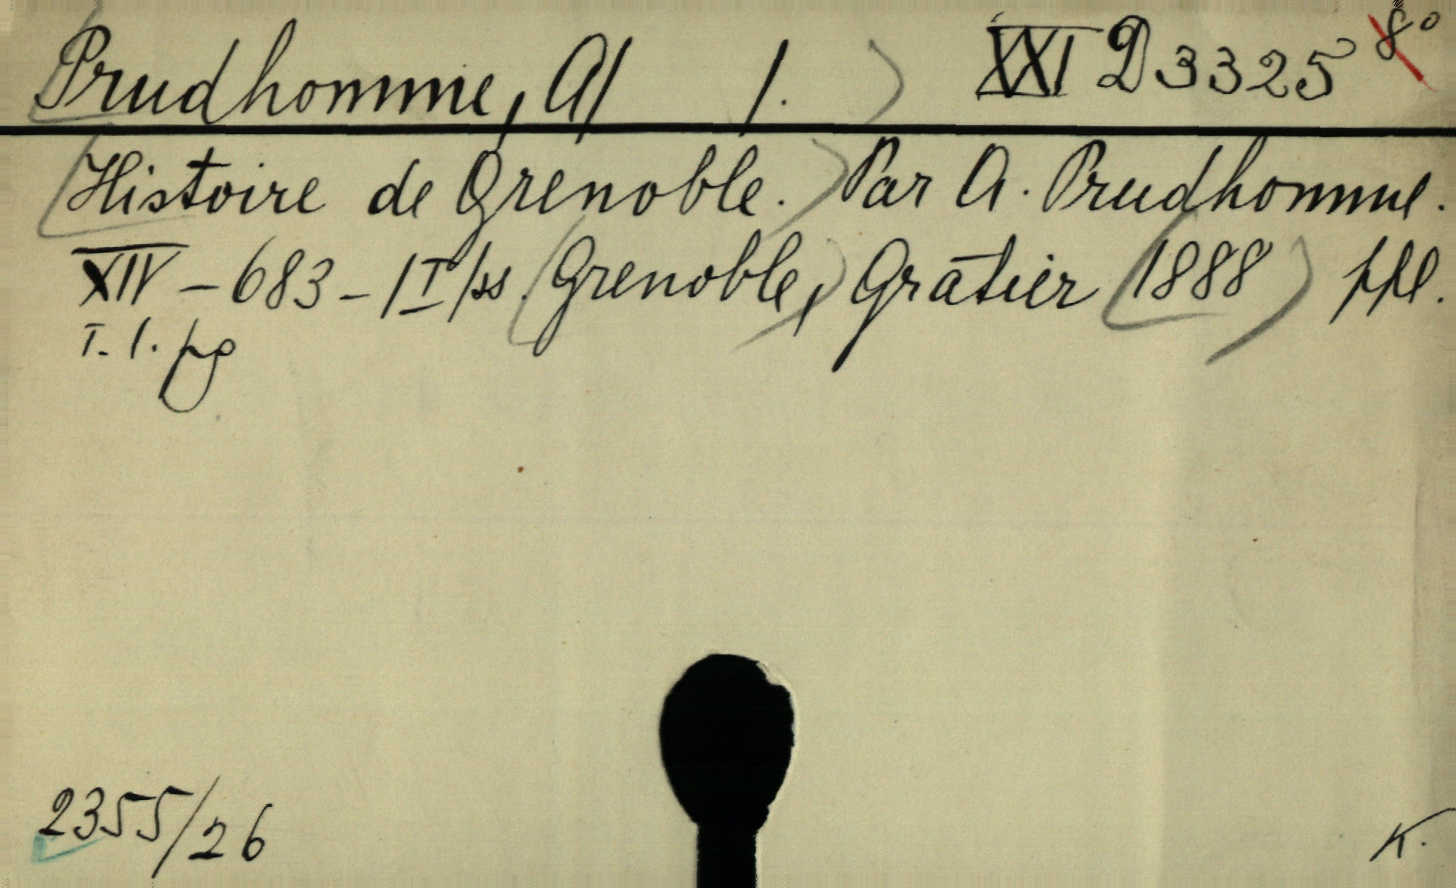 Prudhomme, A/ /. XXI D 3325 8°
Histoire de Grenoble. Par A. Prudhomme.
XIV – 683 – /I/ ss. Grenoble, Gratier 1888 ppl.
T. l. pg
2355/26
K.